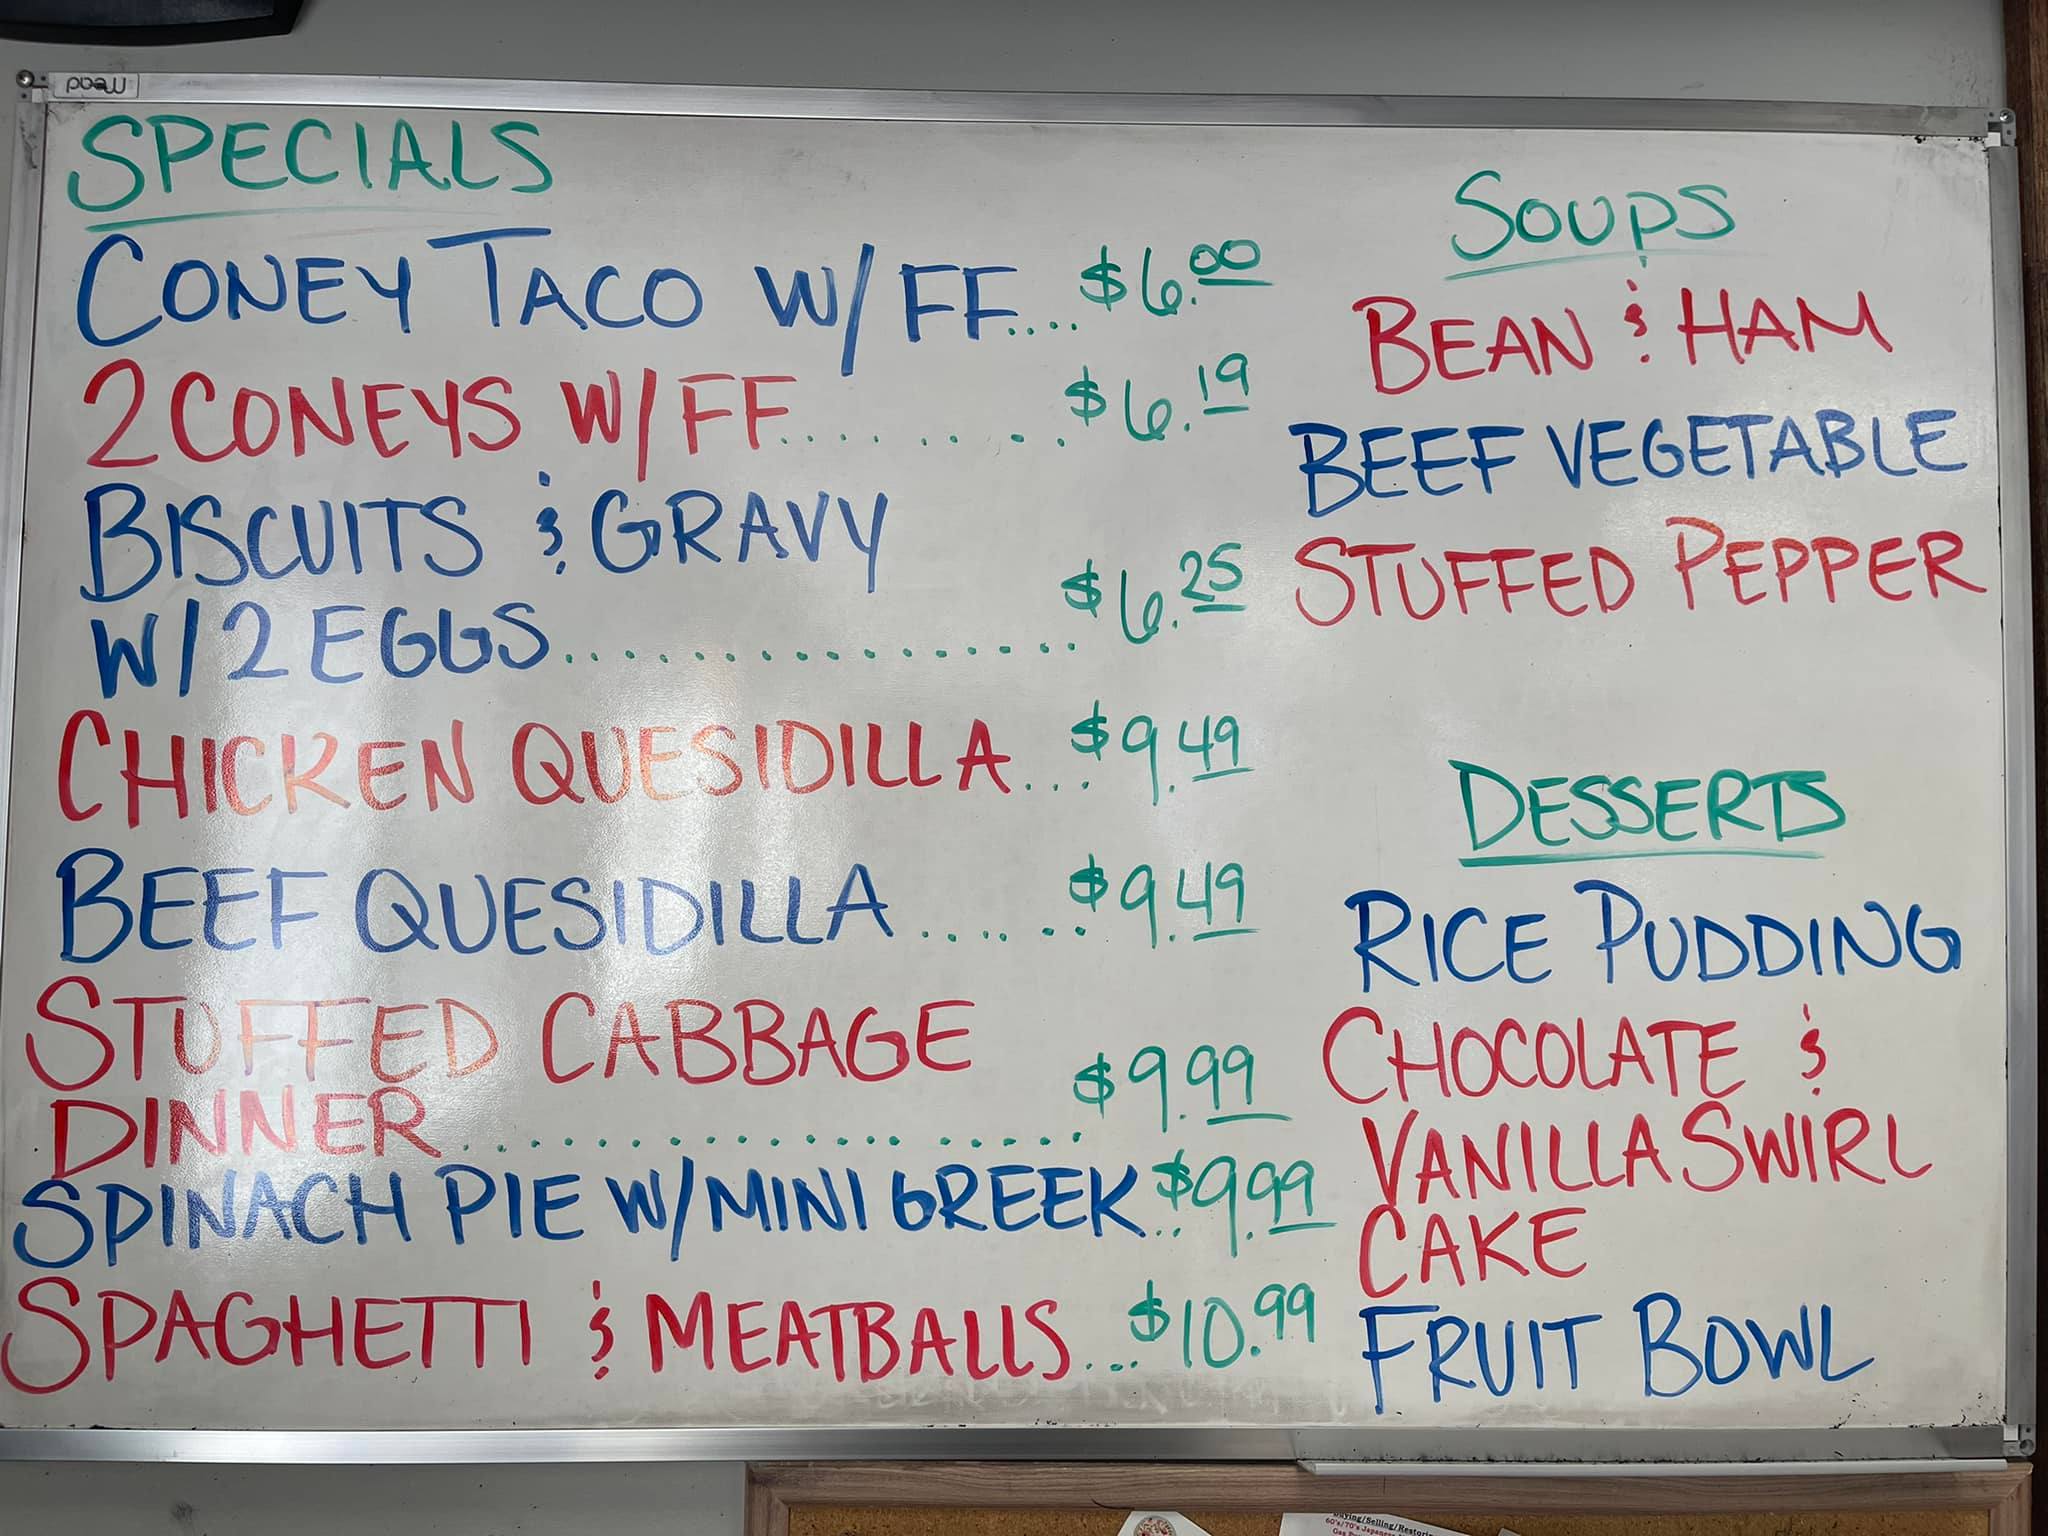 Mead
SPECIALS
CONEY TACO W/ FF....$6.00
2 CONEYS W/ FF.........$6.19
BISCUITS & GRAVY
W/ 2 EGGS..................$6.25
CHICKEN QUESIDILLA...$9.49
BEEF QUESIDILLA......$9.49
STUFFED CABBAGE
DINNER..................$9.99
SPINACH PIE W/ MINI GREEK..$9.99
SPAGHETTI & MEATBALLS...$10.99
SOUPS
BEAN & HAM
BEEF VEGETABLE
STUFFED PEPPER
DESSERTS
RICE PUDDING
CHOCOLATE &
VANILLA SWIRL
CAKE
FRUIT BOWL
Buying/Selling/Restoring
60's/70's Japanese